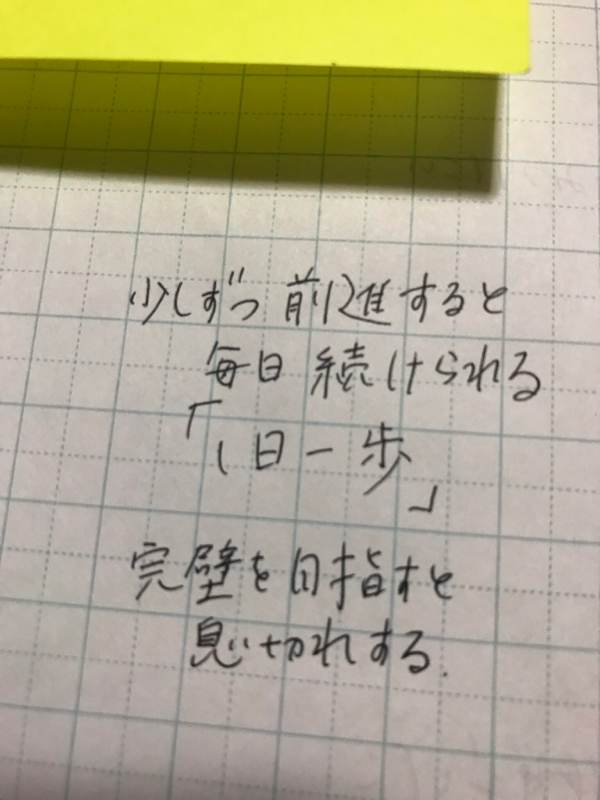 少しずつ 前進すると
毎日 続けられる
「1日一歩」
完璧を目指すと
息切れする.